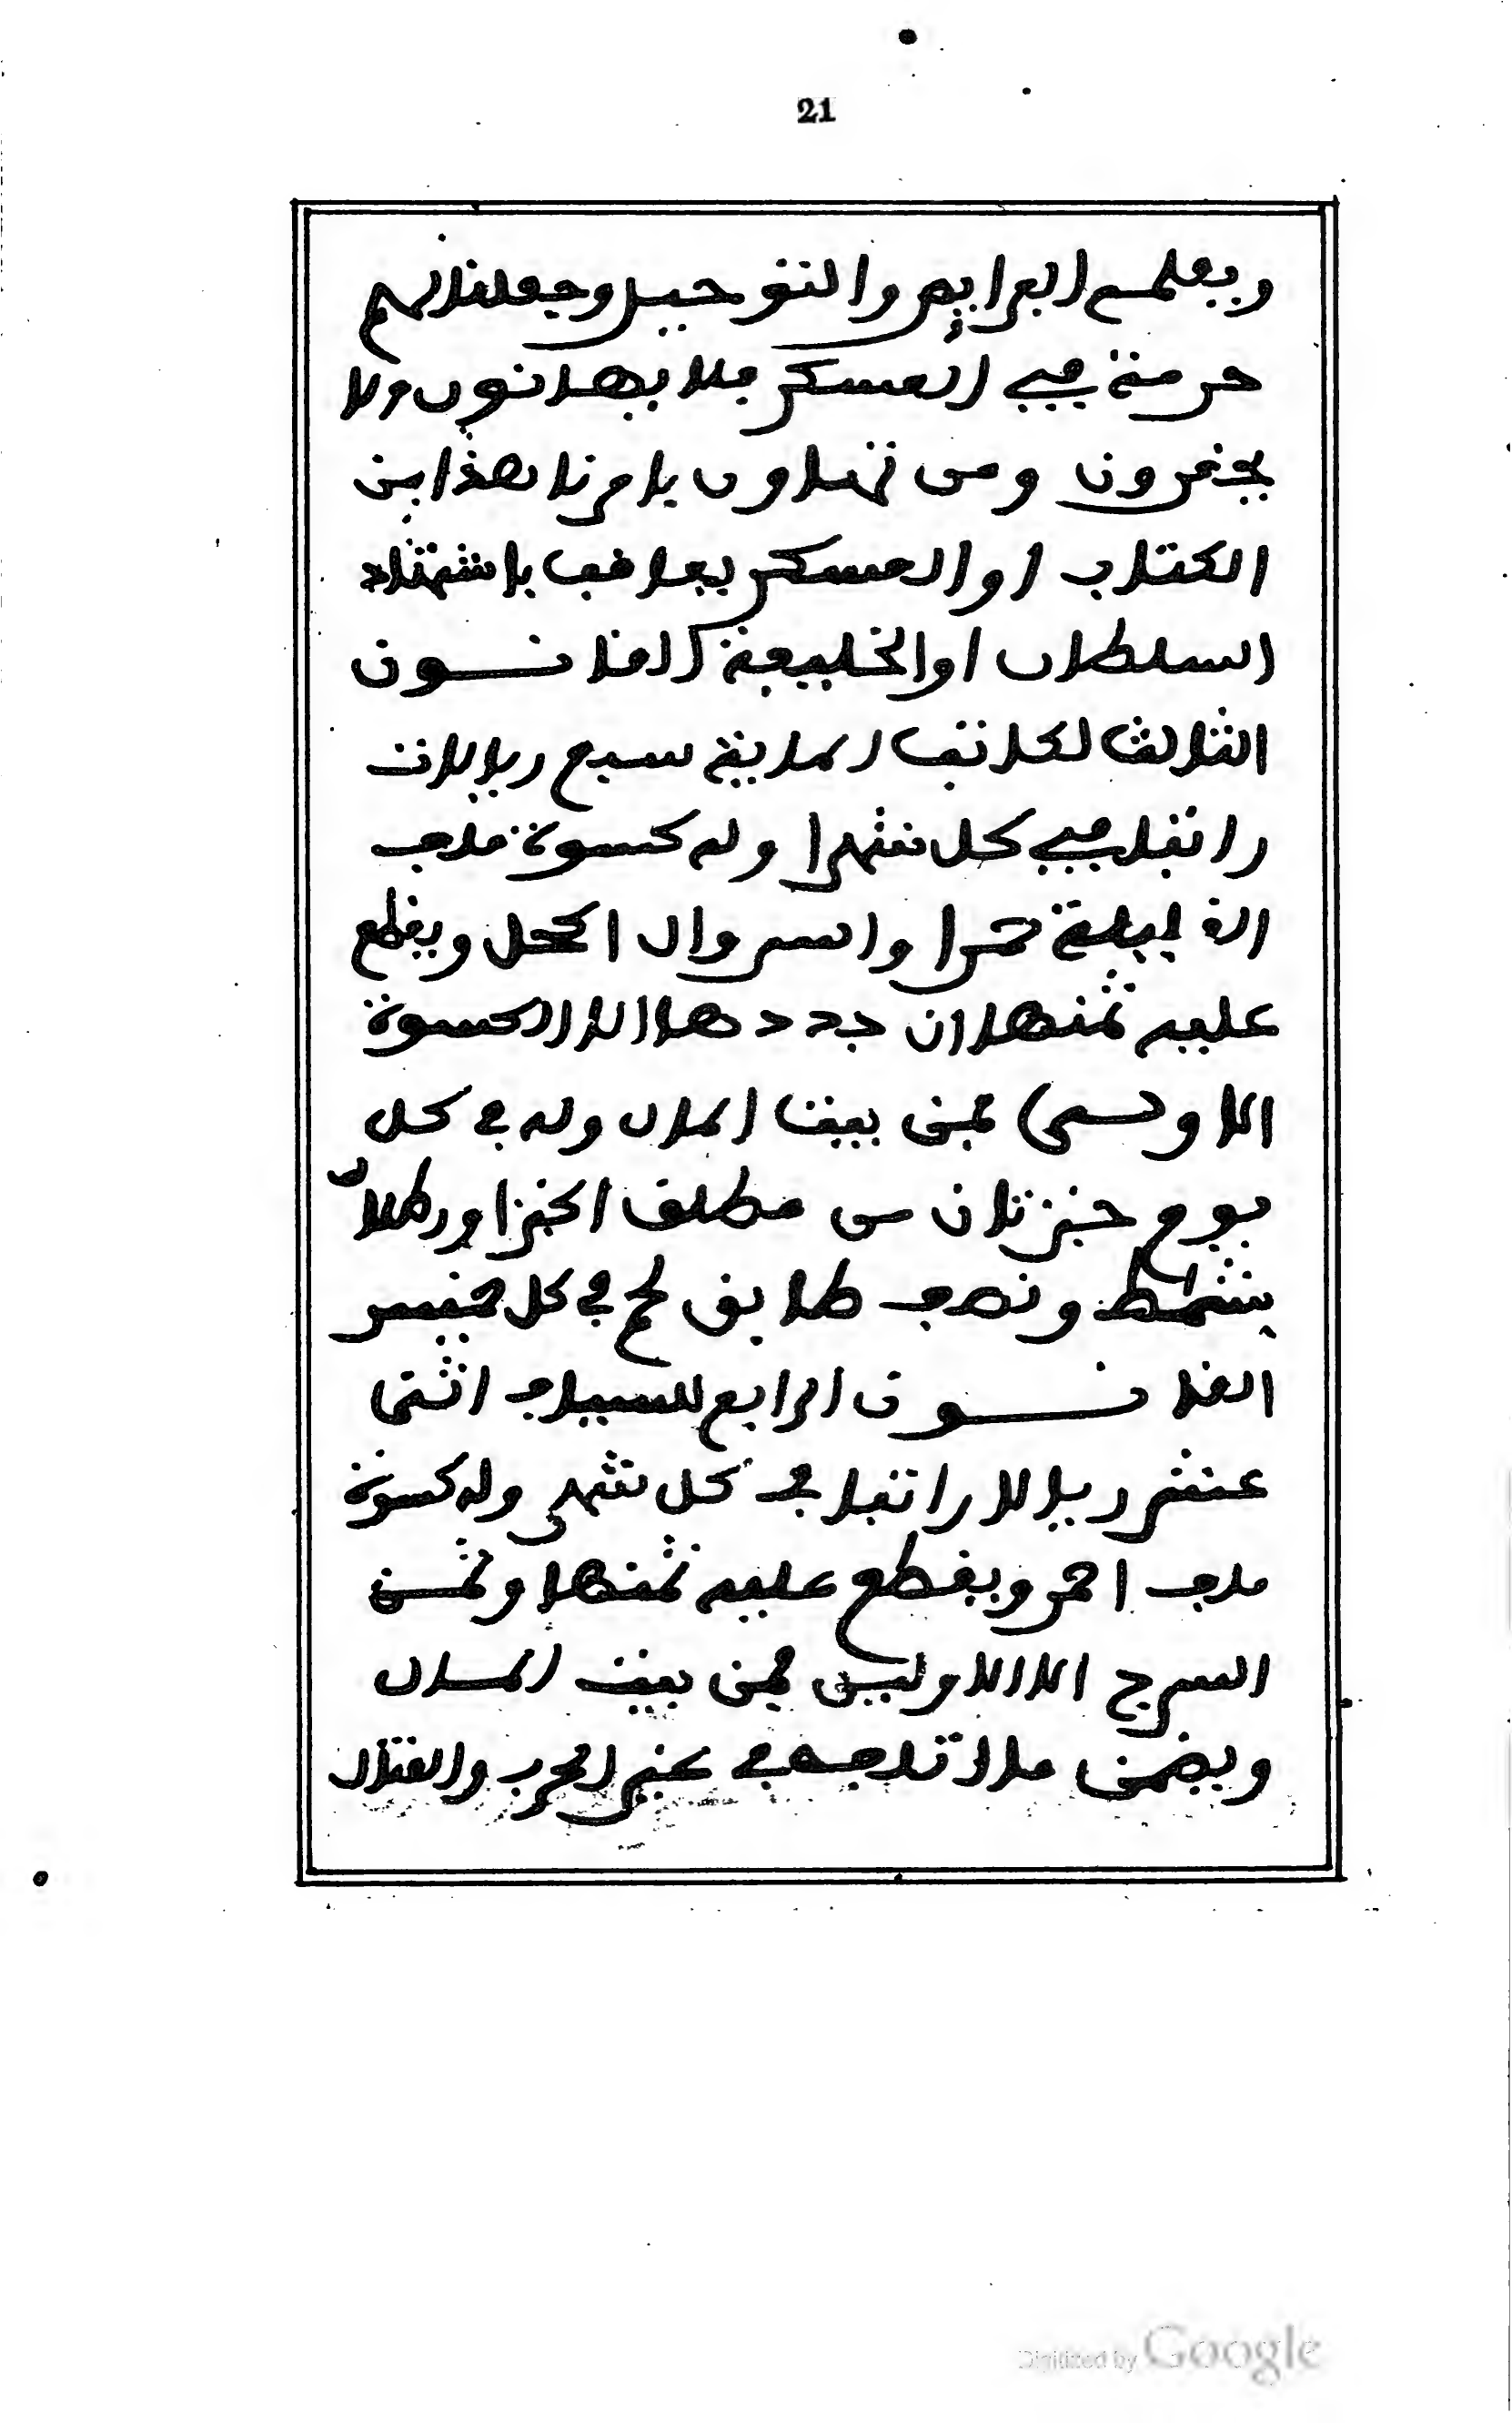 21
ويعلمهم الفرايض والتوحيد وجعلنا لهم
حرمة في العسكر فلا يهانون ولا
يحقرون ومن تهاون بامرنا هذا من
الكتاب او العسكر يعاقب باشتهاد
السلطان او الخليفة القانون
الثالث لكاتب الماية سبع ريالات
راتبا في كل شهر وله كسوة ملف
الغليلة حمرا والسروال اكحل ويقطع
عليه ثمنها ان جددها الا الكسوة
الاولى فمن بيت المال وله في كل
يوم خبزتان من مطلق الخبز او رطلان
بشماط ونصف طابق لحم في كل خميس
القانون الرابع للسياف اثنى
عشر ريالا راتبا في كل شهر وله كسوة
ملف احمر ويقطع عليه ثمنها وثمن
السرج الا الاولين فمن بيت المال
ويضمن ما اتلفه في غير الحرب والقتال
Digitized by Google